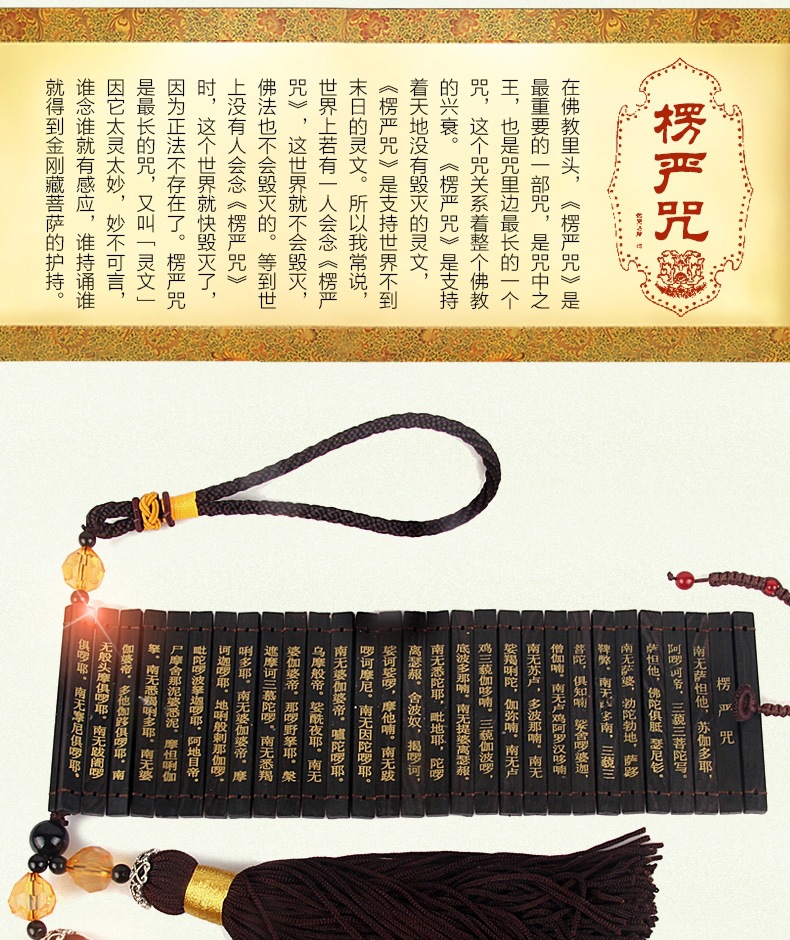 楞严咒
在佛教里头，《楞严咒》是
最重要的一部咒，是咒中之
王，也是咒里边最长的一个
咒，这个咒关系着整个佛教
的兴衰。《楞严咒》是支持
着天地没有毁灭的灵文，
《楞严咒》是支持世界不到
末日的灵文。所以我常说，
世界上若有一人会念《楞严
咒》，这世界就不会毁灭，
佛法也不会毁灭的。等到世
上没有人会念《楞严咒》
时，这个世界就快毁灭了，
因为正法不存在了。楞严咒
是最长的咒，又叫「灵文」
因它太灵太妙，妙不可言，
谁念谁就有感应，谁持诵谁
就得到金刚藏菩萨的护持。
楞严咒
南无萨怛他。苏伽多耶，
阿啰诃帝。三藐三菩陀写。
萨怛他。佛陀俱胝。瑟尼钐。
南无萨婆。勃陀勃地，萨跢
鞞弊。南无萨多南。三藐三
菩陀。俱知喃。娑舍啰婆迦
僧伽喃。南无卢鸡阿罗汉哆喃。
南无苏卢。多波那喃。南无
娑羯唎陀。伽弥喃。南无卢
鸡三藐伽哆喃。三藐伽波啰，
底波多那喃。南无提婆离瑟赧。
南无悉陀耶，毗地耶。陀啰
离瑟赧。舍波奴。揭啰诃
娑诃娑啰，摩他喃。南无跋
啰诃摩尼。南无因陀啰耶。
南无婆伽婆帝。嚧陀啰耶。
乌摩般帝。娑酰夜耶。南无
婆伽婆帝。那啰野拏耶。槃
遮摩诃三慕陀啰。南无悉羯
唎多耶。南无婆伽婆帝。摩
诃迦啰耶。地唎般剌那伽
毗陀啰波拏迦啰耶。阿地目帝。
尸摩舍那泥婆悉泥。摩怛唎伽
拏。南无悉羯唎多耶。南无婆
伽婆帝。多他伽跢俱啰耶。南
无般头摩俱啰耶。南无跋阇啰
俱啰耶。南无摩尼俱啰耶。